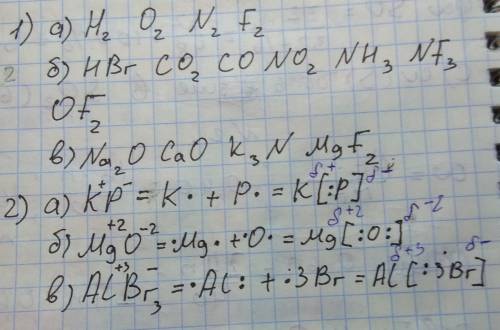 1) а) H₂ O₂ N₂ F₂
б) HBr CO₂ CO NO₂ NH₃ NF₃
OF₂
в) Na₂O CaO K₃N MgF₂
2) а) K⁺P⁻ = K· + P· = K^δ+[:P]^δ-
б) Mg⁺²O⁻² = ·Mg· + ·O· = Mg^δ+2[:O:]^δ-2
в) Al⁺³Br₃⁻ = ·Al: + :3Br = Al^δ+3[:3Br]^δ-